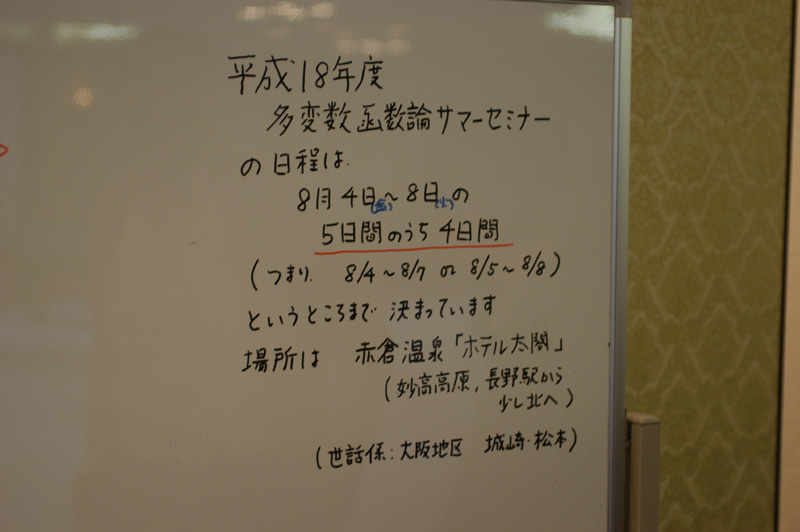 平成18年度
多変数函数論サマーセミナー
の日程は.
8月4日(金)～8日(火)の
5日間のうち 4日間
(つまり. 8/4～8/7 or 8/5～8/8)
というところまで 決まっています
場所は 赤倉温泉「ホテル太閤」
(妙高高原, 長野駅から
少し北へ)
(世話係:大阪地区 城崎・松本)